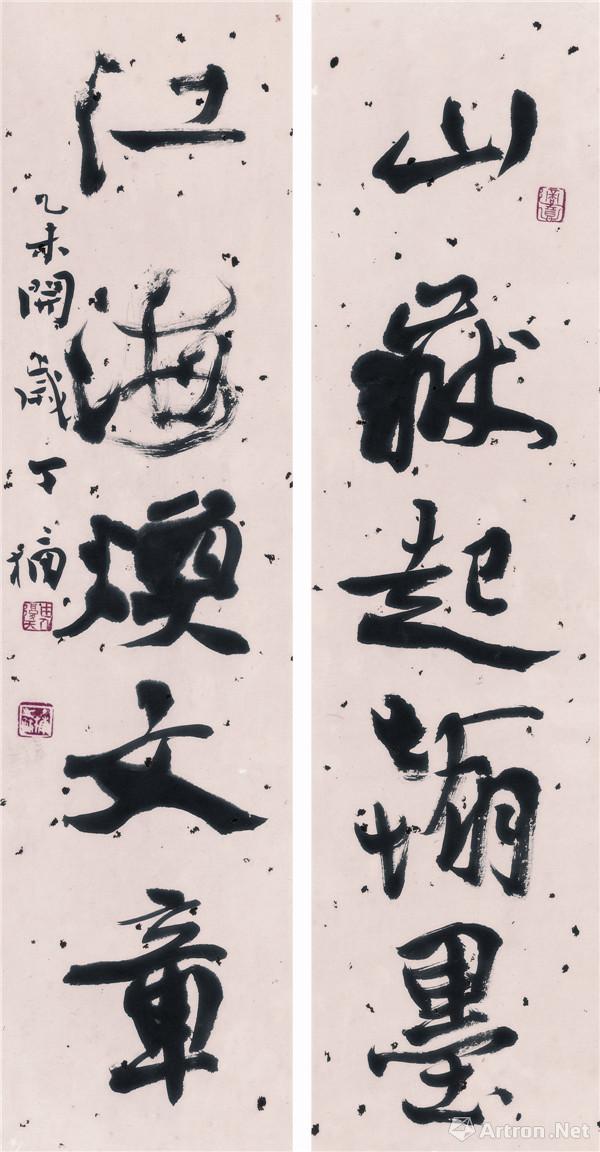 山嶽起翰墨
江海煥文章
乙未開歲丁
Artron.Net